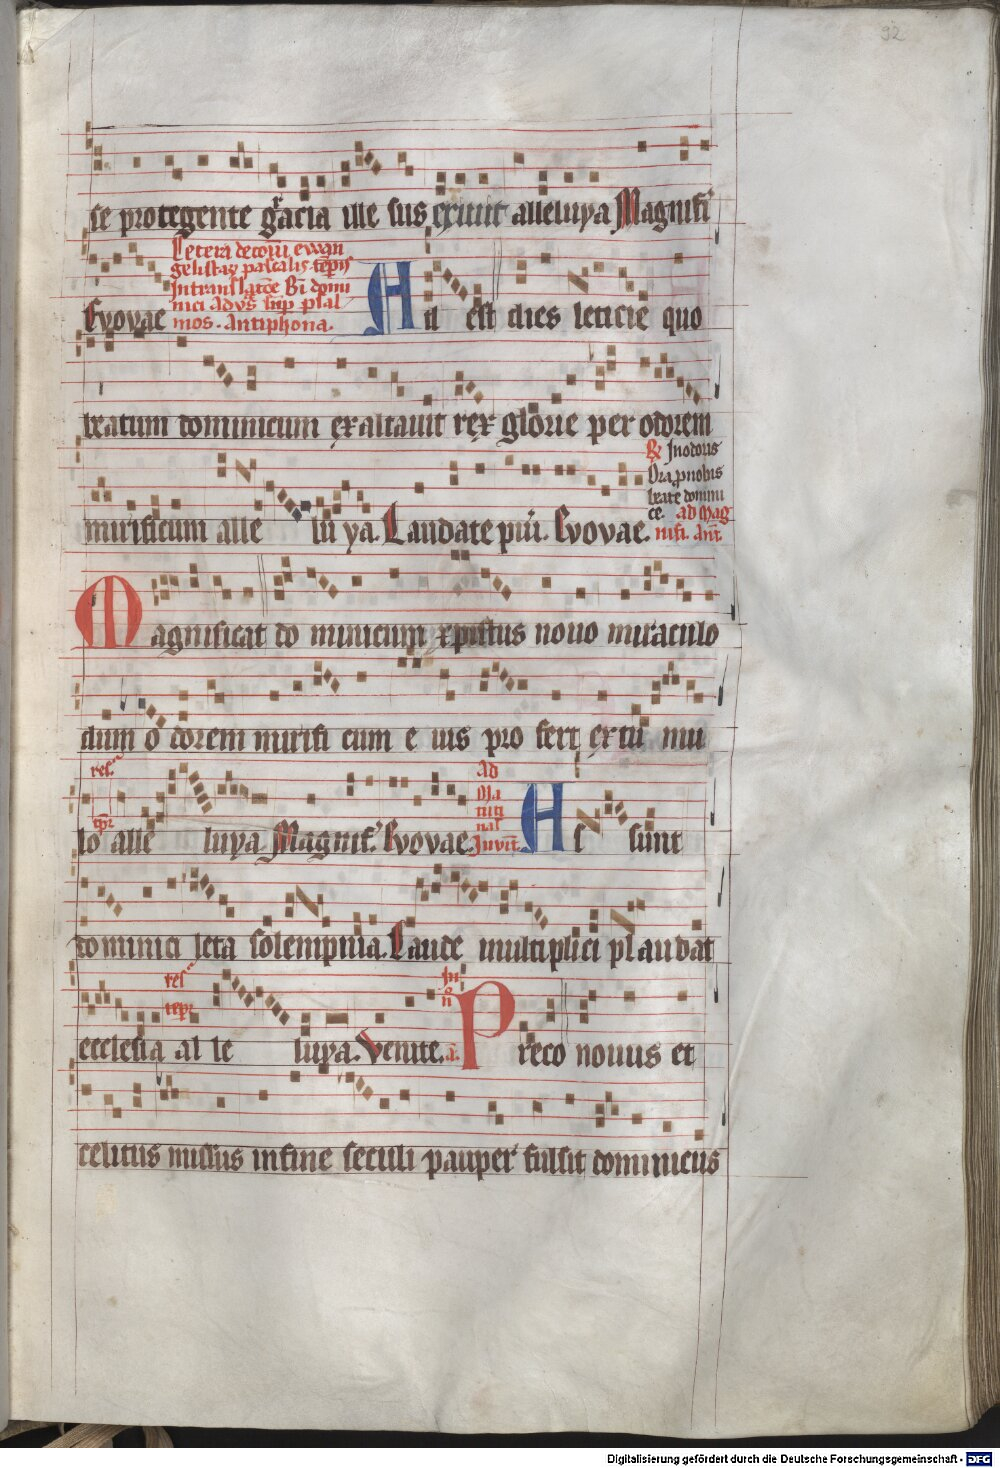 92
se protegente gracia ille sus exiuit alleluya Magnifi
Cetera de
gelistar pascalis
In translac Bi domi
nici Ad super psal
mos. Antiphona.
Euouae
est dies leticie quo
beatum dominicum exaltauit rex glorie per odorem
mirificum alle lu ya. Laudate Euouae.
In odoris
Ora nobis
beate domini
ce. ad Mag
nifi. Ant.
Magnificat do minicum xpistus nouo miraculo
dum o dorem mirifi cum e ius pro fert mu
res.
lo alle luya Magnif. Euouae.
Ad
Ma
tuti
nas
Inuit.
As sunt
dominici leta solempnia. Laude multiplici plaudat
res
ecclesia al le luya. Venite. a. Preco nouus et
celitus missus in fine seculi pauper fulsit dominicus
Digitalisierung gefördert durch die Deutsche Forschungsgemeinschaft - DFG